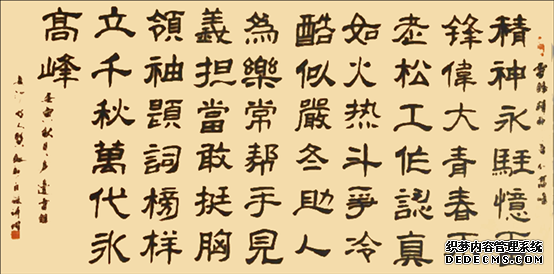 精神永駐憶雷
鋒偉大青春不
老松工作認真
如火热斗爭冷
酷似嚴冬助人
為樂常帮手見
義担當敢挺胸
領袖題詞榜样
立千秋萬代氷
高峰
织梦内容管理系统
DEDECMS.COM